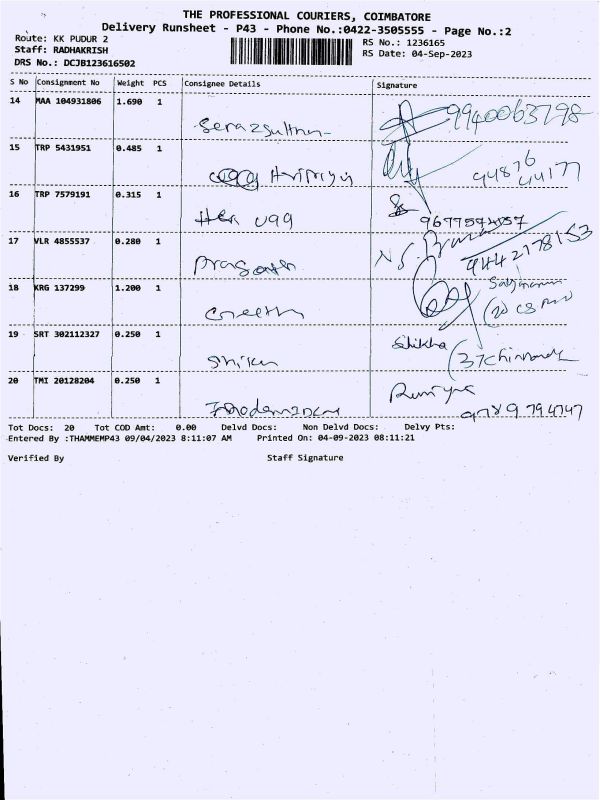 THE PROFESSIONAL COURIERS, COIMBATORE
Delivery Runsheet - P43 - Phone No.:0422-3505555 - Page No.:2
Route: KK PUDUR 2
RS No.: 1236165
Staff: RADHAKRISH
RS Date: 04-Sep-2023
DRS No.: DCJB123616502
S No Consignment No Weight PCS Consignee Details Signature
14 MAA 104931806 1.690 1
9940063798
15 TRP 5431951 0.485 1
94876
44177
16 TRP 7579191 0.315 1
17 VLR 4855537 0.280 1
9442178153
Prasath
18 KRG 137299 1.200 1
Geetha
19 SRT 302112327 0.250 1
Shikha
20 TMI 20128204 0.250 1
9789794747
Tot Docs: 20 Tot COD Amt: 0.00 Delvd Docs: Non Delvd Docs: Delvy Pts:
Entered By :THAMMEMP43 09/04/2023 8:11:07 AM Printed On: 04-09-2023 08:11:21
Verified By Staff Signature